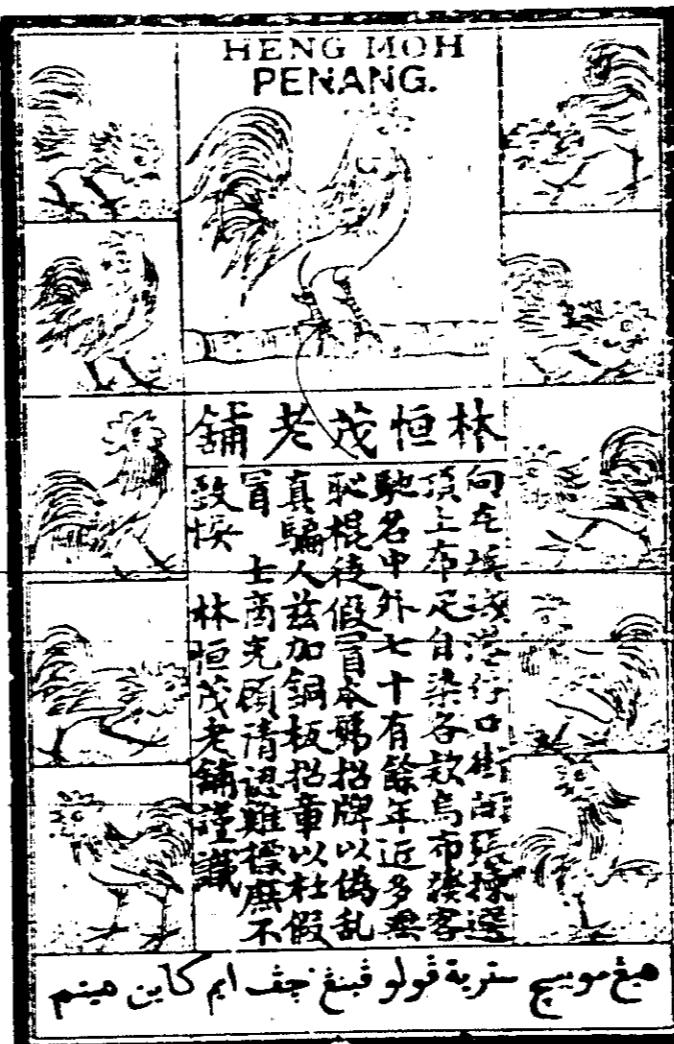 HENG MOH
PENANG.
林恒茂老舖
向在埠港仔口街開張揀選
頂上布疋自染各款烏布發客
馳名中外七十有餘年近多無
恥棍徒假冒本號招牌以偽乱
真騙人茲加銅板招章以杜假
冒 士商光顧請認雞標庶不
致悞 林恒茂老舖謹識
هيڠ موه سڤوله ڤولو ڤينڠ چڤ ايم كاين هيتم